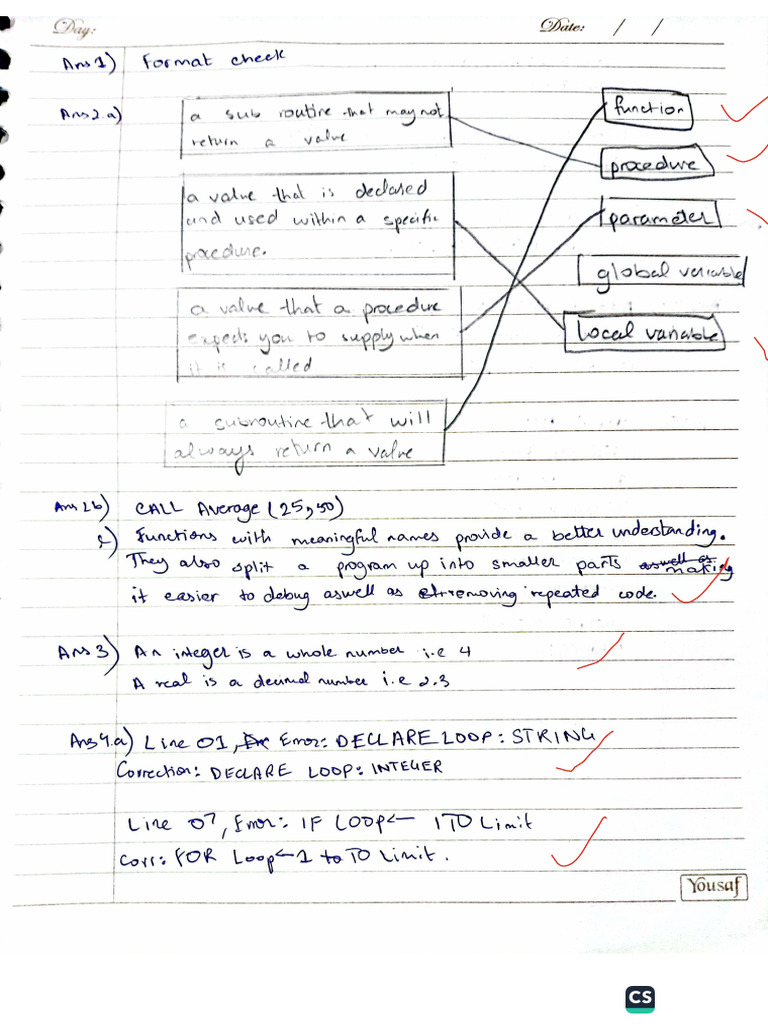 Day:
Date: / /
Ans 1) Format check
Ans 2.a)
a sub routine that may not
return a value
function
procedure
a value that is declared
and used within a specific
procedure.
parameter
global variable
local variable
a value that a procedure
expects you to supply when
it is called
a subroutine that will
always return a value
Ans 2b) CALL Average (25,50)
c) Functions with meaningful names provide a better understanding.
They also split a program up into smaller parts aswell as making
it easier to debug aswell as removing repeated code.
Ans 3) An integer is a whole number i.e 4
A real is a decimal number i.e 2.3
Ans 4.a) Line 01, Error: DECLARE LOOP: STRING
Correction: DECLARE LOOP: INTEGER
Line 07, Error: IF LOOP← 1 TO Limit
Corr: FOR Loop←1 to TO Limit.
Yousaf
CS